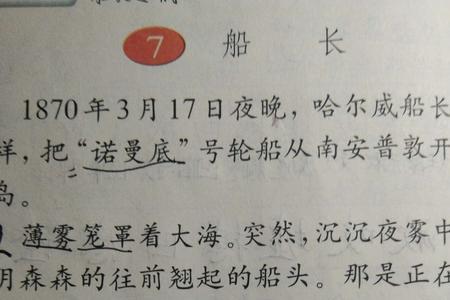 7 船长
1870年3月17日夜晚，哈尔威船长
样，把“诺曼底”号轮船从南安普敦开
岛。
薄雾笼罩着大海。突然，沉沉夜雾中
阴森森的往前翘起的船头。那是正在